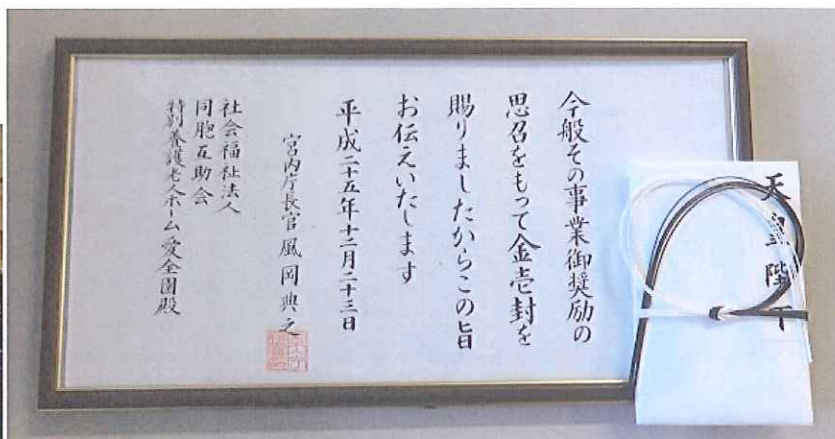 今般その事業御奨励の
思召をもって金壱封を
賜りましたからこの旨
お伝えいたします
平成二十五年十二月二十三日
宮内庁長官風岡典之
社会福祉法人
同胞互助会
特別養護老人ホーム愛全園殿
天皇陛下